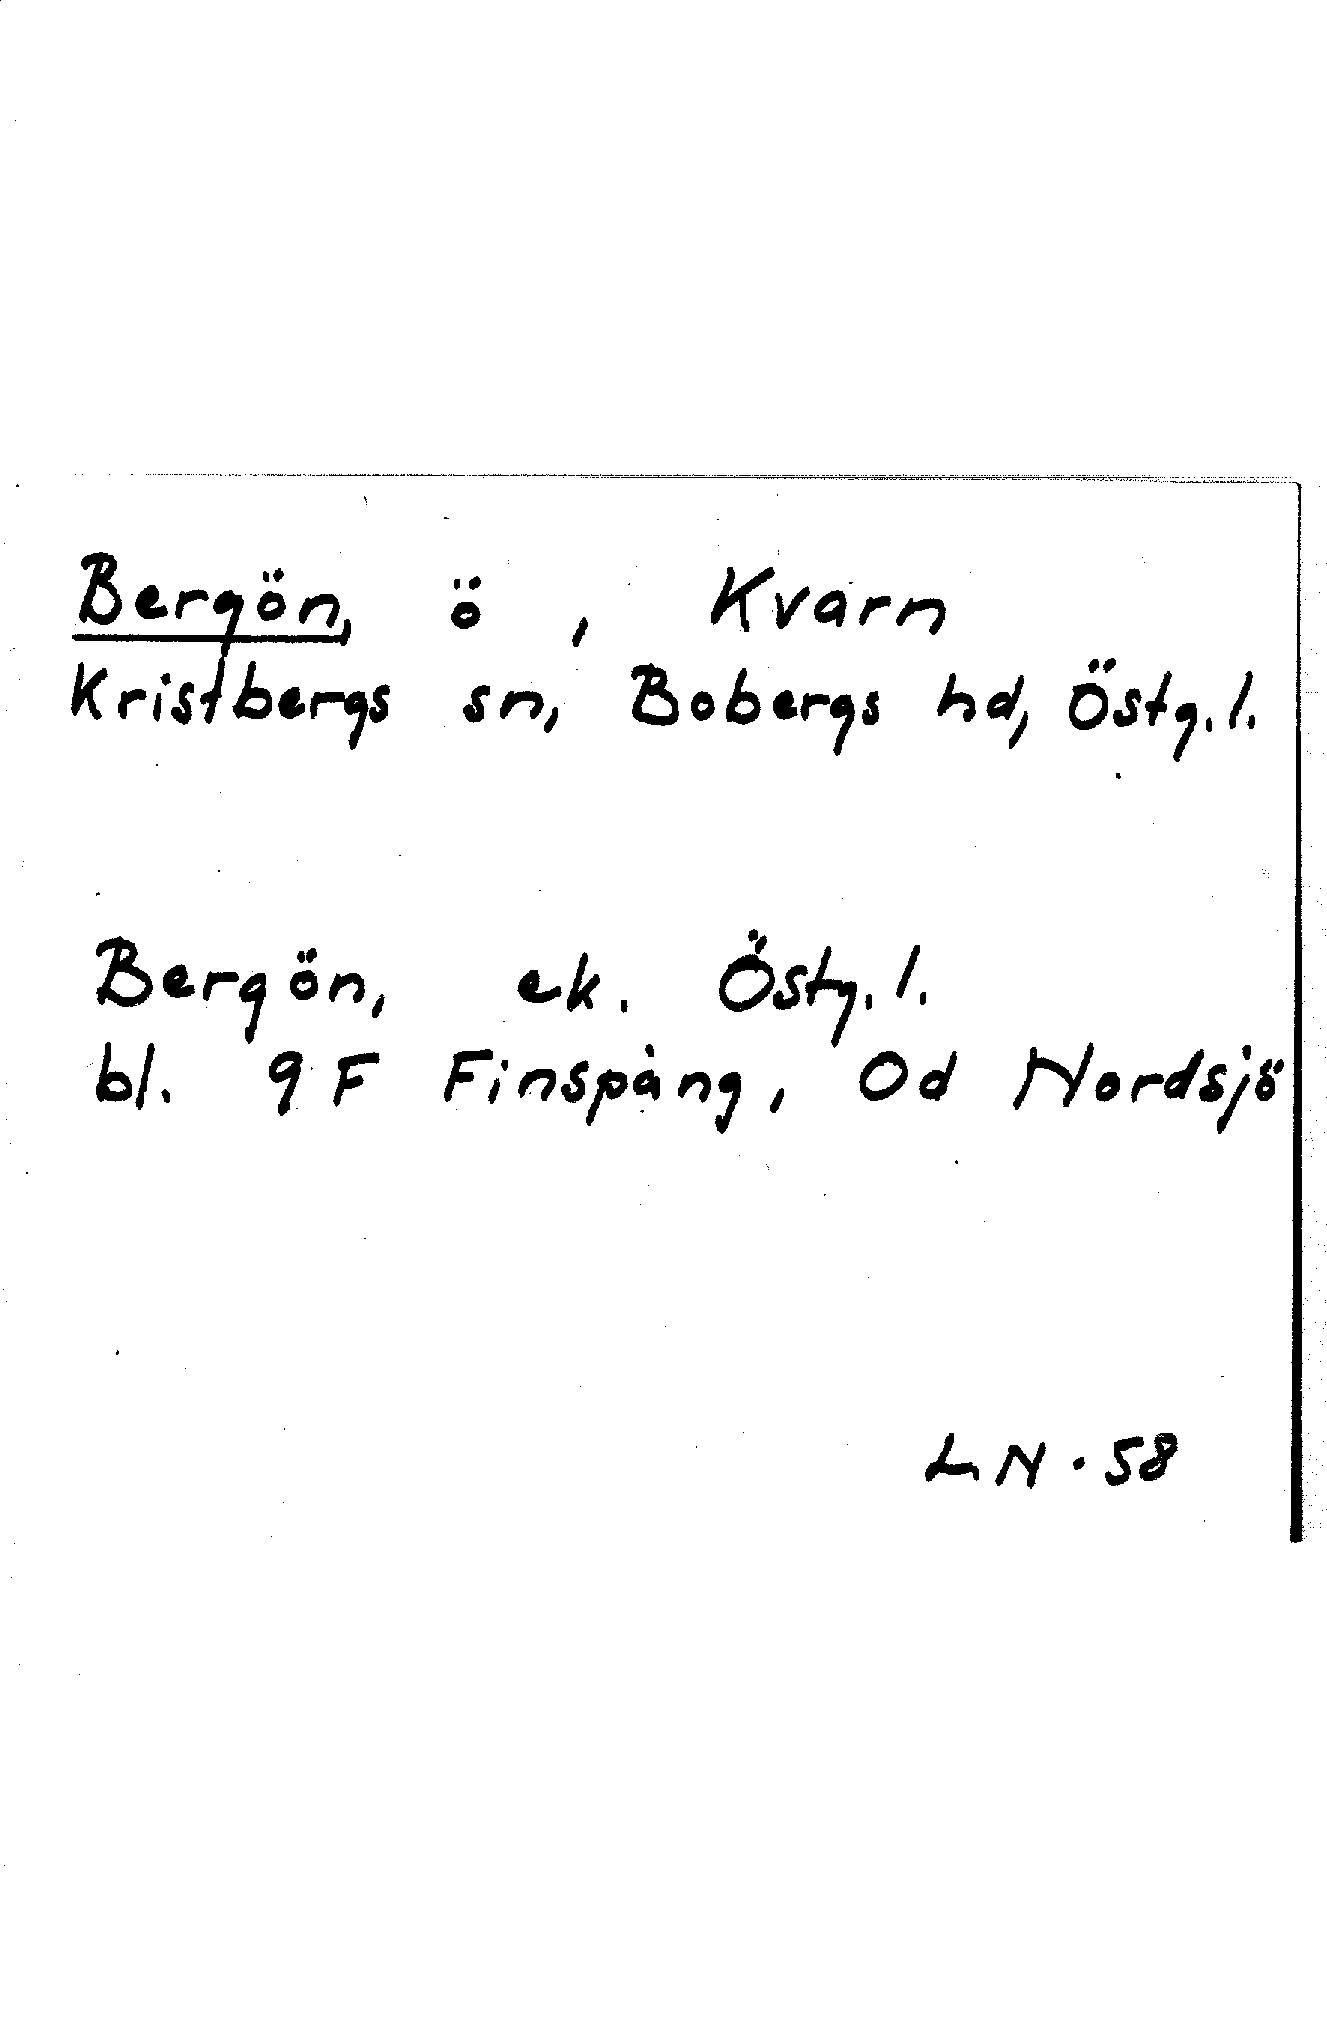 Bergön, ö , Kvarn
Kristbergs sn, Bobergs hd, Östg. l.
Bergön, ek. Östg. l.
bl. 9 F Finspång, Od Nordsjö
LN · 58